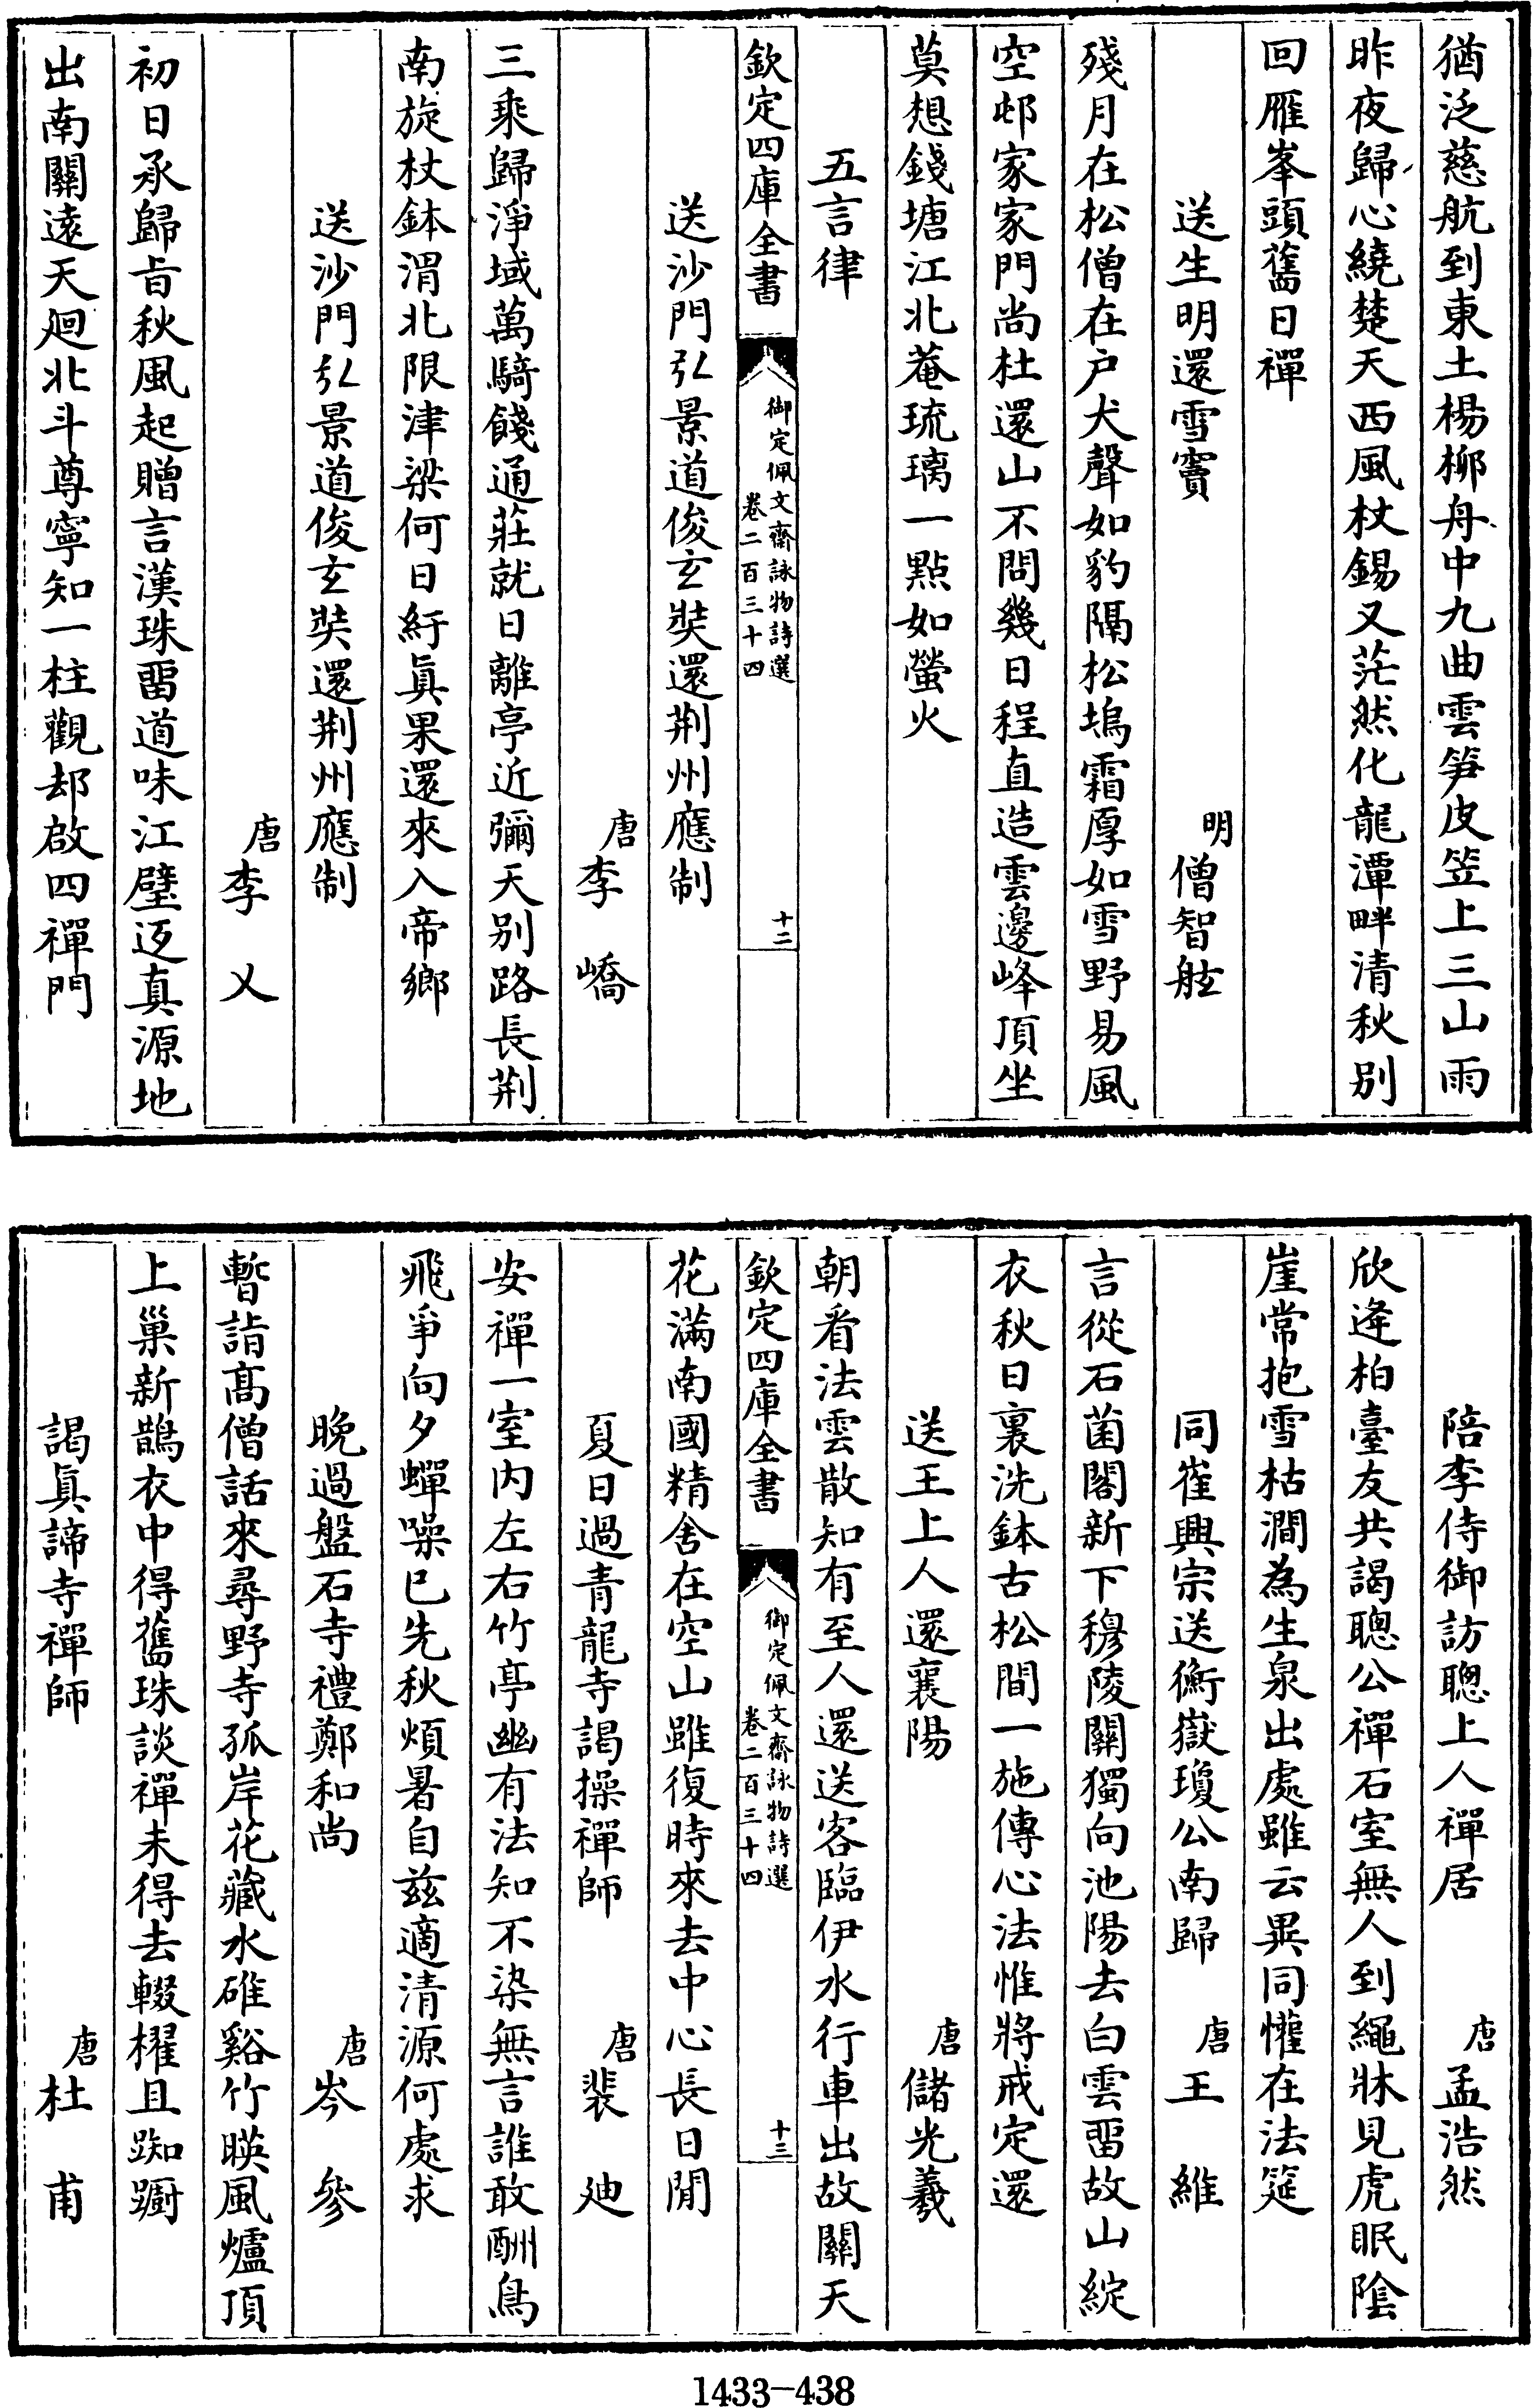 猶泛慈航到東土楊柳舟中九曲雲笋皮笠上三山雨
昨夜歸心繞楚天西風杖錫又茫然化龍潭畔清秋别
回雁峯頭舊日禪
送生明還雪竇
明僧智舷
殘月在松僧在户犬聲如豹隔松塢霜厚如雪野易風
空邨家家門尚杜還山不問幾日程直造雲邊峰頂坐
莫想錢塘江北菴琉璃一點如螢火
五言律
欽定四庫全書
御定佩文齋詠物詩選
卷二百三十四
十二
送沙門弘景道俊玄奘還荆州應制
唐李嶠
三乘歸淨域萬騎餞通莊就日離亭近彌天别路長荆
南旋杖鉢渭北限津梁何日紆眞果還來入帝鄉
送沙門弘景道俊玄奘還荆州應制
唐李乂
初日承歸旨秋風起贈言漢珠畱道味江璧返真源地
出南關逺天廻北斗尊寧知一柱觀却啟四禪門
陪李侍御訪聰上人禪居
唐孟浩然
欣逄柏臺友共謁聰公禪石室無人到繩牀見虎眠隂
崖常抱雪枯澗為生泉出處雖云異同懽在法筵
同崔興宗送衡嶽瓊公南歸
唐王維
言從石菌閣新下穆陵關獨向池陽去白雲畱故山綻
衣秋日裏洗鉢古松間一施傳心法惟將戒定還
送王上人還襄陽
唐儲光羲
朝看法雲散知有至人還送客臨伊水行車出故關天
欽定四庫全書
御定佩文齋詠物詩選
卷二百三十四
十三
花滿南國精舍在空山雖復時來去中心長日閒
夏日過青龍寺謁操禪師
唐裴廸
安禪一室内左右竹亭幽有法知不染無言誰敢酬鳥
飛爭向夕蟬噪已先秋煩暑自兹適清源何處求
晚過盤石寺禮鄭和尚
唐岑參
暫詣髙僧話來尋野寺孤岸花藏水碓谿竹暎風爐頂
上巢新鵲衣中得舊珠談禪未得去輟櫂且踟蹰
謁眞諦寺禪師
唐杜甫
1433-438